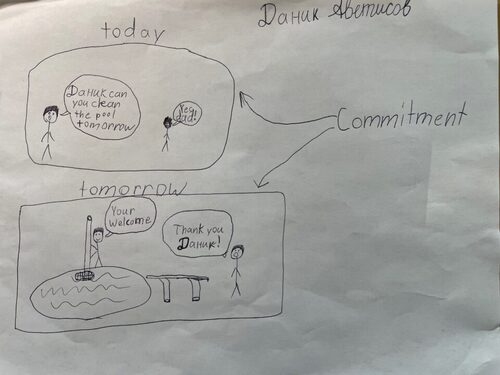 Даник Аветисов
today
Даник can
you clean
the pool
tomorrow
Yes,
dad!
Commitment
tomorrow
Your
welcome
Thank you
Даник!